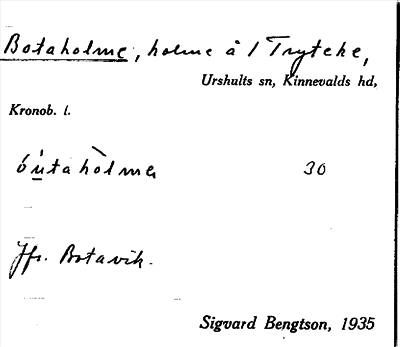 Botaholme, holme å / Trytehe,
Urshults sn, Kinnevalds hd,
Kronob. l.
óu̲tahòlmɐ 30
Jfr. Botavik.
Sigvard Bengtson, 1935